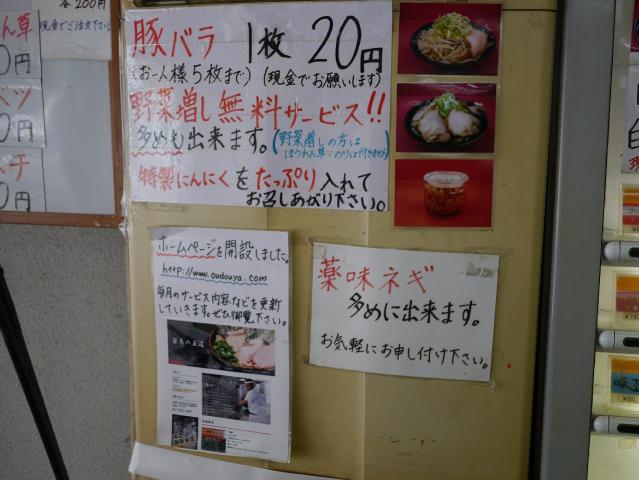 各200円
現金でご注文下さい。
ん草
0円
ベツ
0円
チ
0円
豚バラ 1枚 20円
(お一人様5枚まで)(現金でお願いします)
野菜増し無料サービス!!
多めも出来ます。(野菜増しの方は
ほうれん草・のりは付きません)
特製にんにくをたっぷり入れて
お召しあがり下さい。
ホームページを開設しました。
http://www.oudouya.com
毎月のサービス内容などを更新
していきます。ぜひ御覧下さい。
家系の王道
薬味ネギ
多めに出来ます。
お気軽にお申し付け下さい。